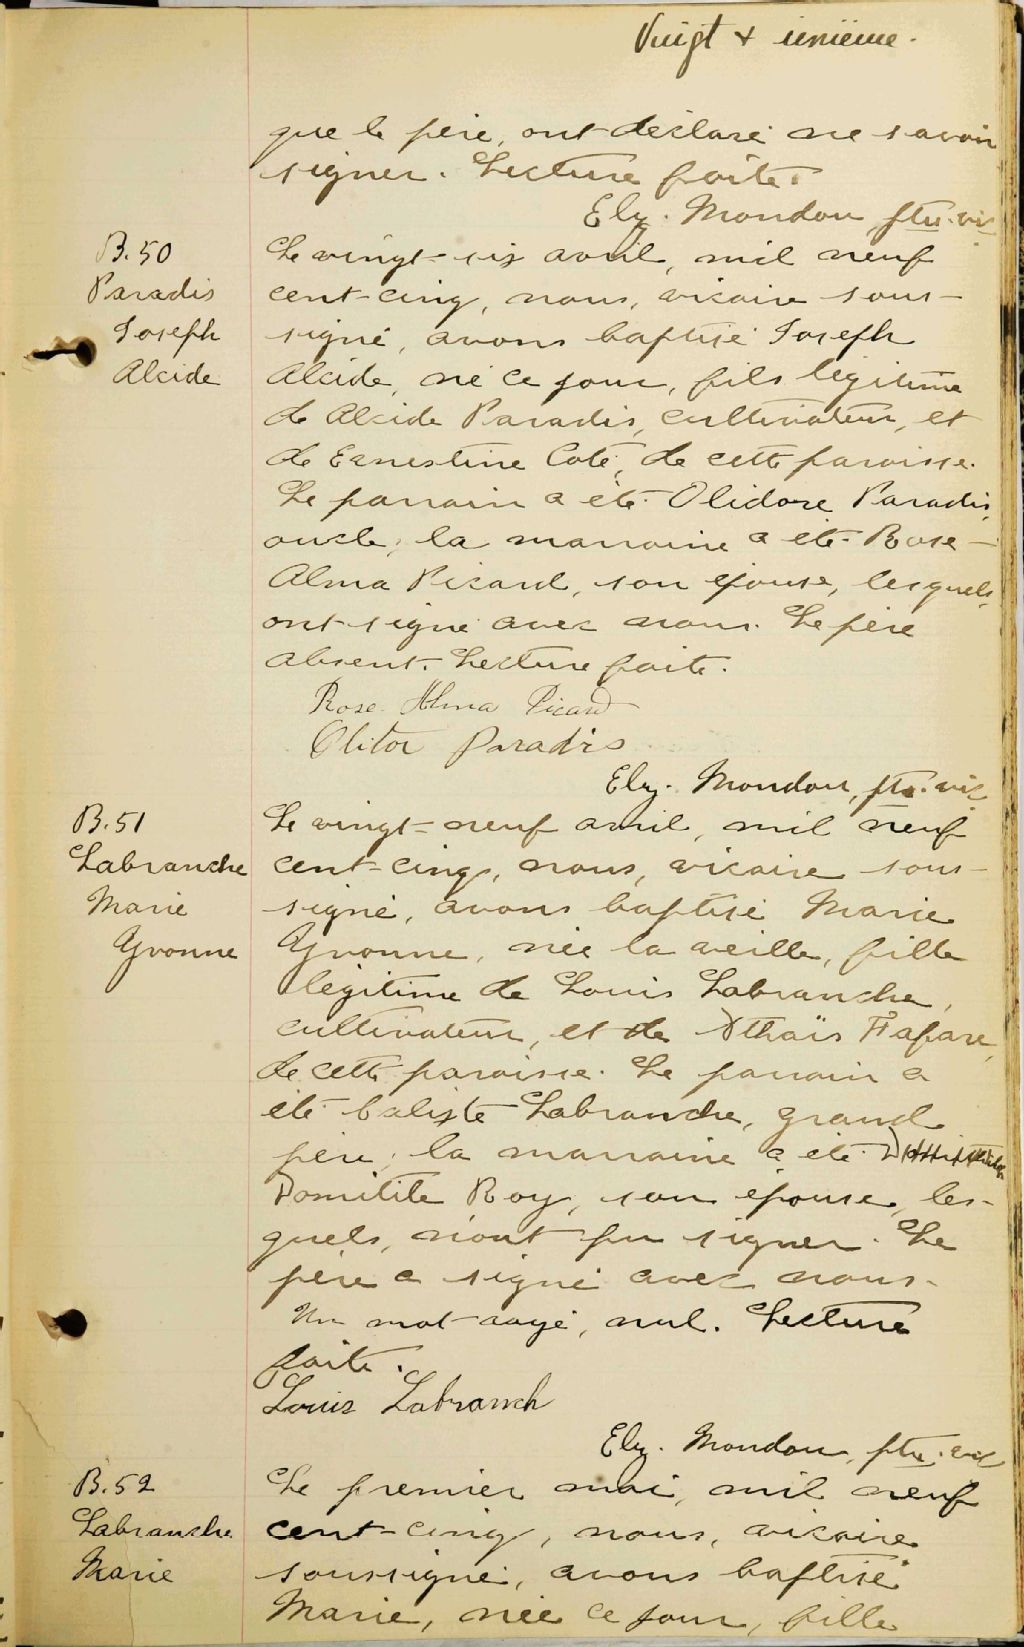 Vingt & unième.
que le père, ont déclaré ne savoir
signer. Lecture faite.
Ely. Mondou, ptre. vic
B. 50
Paradis
Joseph
Alcide
Le vingt-six avril, mil neuf
cent-cinq, nous, vicaire sous-
signé, avons baptisé Joseph
Alcide, né ce jour, fils légitime
de Alcide Paradis, cultivateur, et
de Ernestine Coté, de cette paroisse.
Le parrain a été Olidore Paradis,
oncle, la marraine a été Rose-
Alma Picard, son épouse, lesquels,
ont signé avec nous. Le père
absent. Lecture faite.
Rose Alma Picard
Olitor Paradis
Ely. Mondou, ptre. vic
B. 51
Labranche
Marie
Yvonne
Le vingt-neuf avril, mil neuf
cent-cinq, nous, vicaire sous-
signé, avons baptisé Marie
Yvonne, née la veille, fille
légitime de Louis Labranche,
cultivateur, et de Athaïs
de cette paroisse. Le parrain a
été Calixte Labranche, grand
père, la marraine a été
Domitile Roy, son épouse, les-
quels, n'ont pu signer. Le
père a signé avec nous.
Un mot rayé, nul. Lecture
faite.
Louis Labranch
Ely. Mondou, ptre. vic
B. 52
Labranche
Marie
Le premier mai, mil neuf
cent-cinq, nous, vicaire
soussigné, avons baptisé
Marie, née ce jour, fille